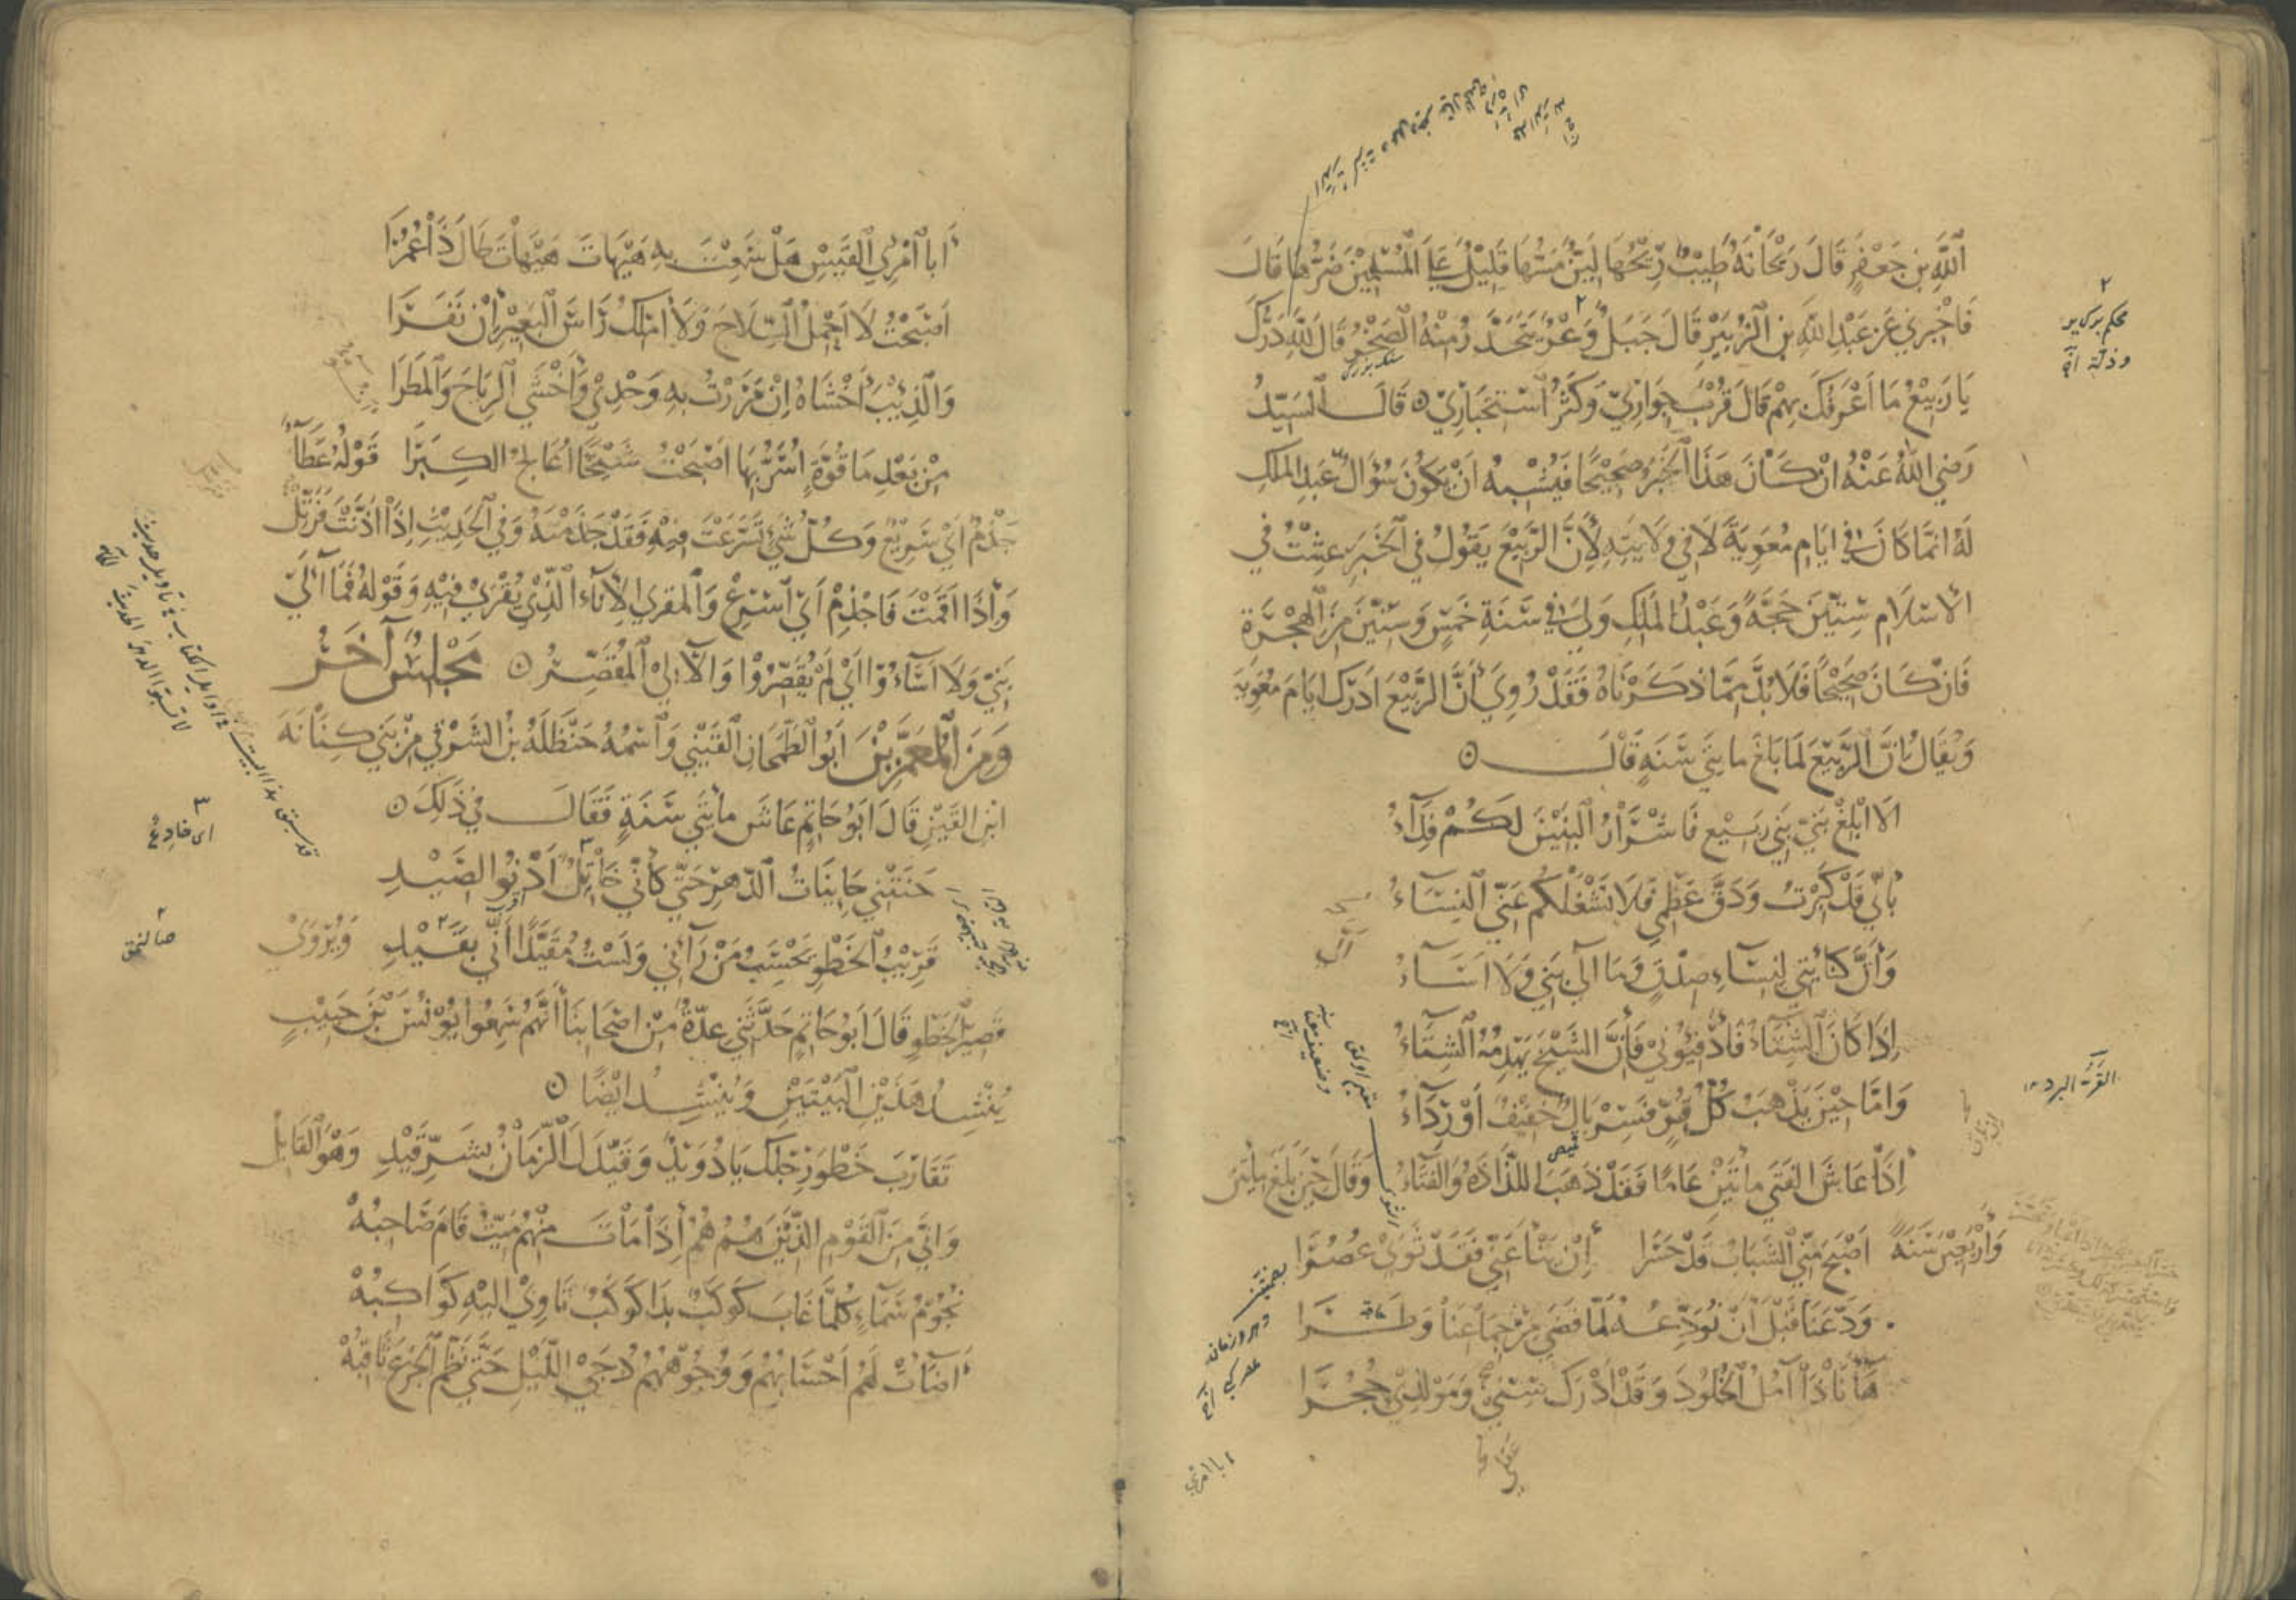 ٱللَّهِ بن جَعْفَرٍ قَالَ رَيْحَانَةٌ طَيِّبٌ رِيْحُهَا لَيِّنٌ مَسُّهَا قَلِيْلٌ عَلَى الْمُسْلِمِيْنَ ضَرُّهَا قَالَ
فَاخْبِرني عَنْ عَبْدِ اللهِ بنِ الزُبَيْرِ قَالَ جَبَلٌ وَعْرٌ يَتَحَدَّرُ مِنْهُ الصَّخْرُ قَالَ لِلَّهِ دَرُّكَ
يَا رَبِيْعُ مَا اَعْرَفَكَ بِهِمْ قَالَ قُرْبُ جِوَارِيْ وَكَثْرَُ ٱسْتِخْبَارِيْ ه قَالَ السَيِّدُ
رَضِيَ اللهُ عَنْهُ انْ كَانَ هَذَا الْخَبَرُ صَحِيْحًا فَيُشْبِهُ اَنْ يَكُونَ سُؤَالُ عَبدِ الملكِ
لَهُ انمَا كَانَ في ايَامِ مُعوِيَةَ لَا في وِلَايَتِهِ لِأَنَّ الرَّبِيْعَ يَقُولُ في الْخَبَرِ عِشْتُ في
الاسْلَامِ سِتِّيْنَ حجَّةً وَعَبْدُ الْمَلِكِ وَلِيَ في سَنَةِ خَمْسٍ وَسِتِيْنَ مِنَ الْهِجْرَةِ
فَانْ كَانَ صَحِيْحًا فَلَا بُدَّ مِمَّا ذَكَرْنَاهُ فَقَدْ رُوِيَ أَنَّ الرَّبِيْعَ ادْرَكَ ايَامَ مُعوِيَةَ
وَيُقَالُ انَّ الرَّبِيْعَ لَمَا بَلَغَ مايتي سَنَةٍ قَالَ ه
الَا ابْلِغْ بَنِيَّ بَنِي رَبِيْعٍ فَاشْرَارُ الْبَنِيْنَ لَكُمْ فِدَآءُ
بأَنّي قَدْ كَبِرْتُ وَدَقَّ عَظْمِي فَلَا تَشْغَلْكُمُ عَنّي النِسَآءُ
وَأَنَّ كَنَائِنِي لنِسَاءُ صِدْقٍ وَمَا آلَى بَنِيَّ وَلَا اَسَآءُ
اِذَا كَانَ الشِّتَآءُ فَأَدْفِئُونيْ فَأنَّ الشَيْخَ يَهْدِمُهُ الشِتَآءُ
وَامَّا حِيْنَ يَذْهَبُ كُلُّ قُرٍّ فَسِرْبَالٌ خَفِيْفٌ اَوْ رِدَآءُ
اِذَا عَاشَ الفَتَى مأتَيْنِ عَامًا فَقَدْ ذَهَبَ اللَّذَاذَةُ وَالفَتَآءُ وَقَالَ حِيْنَ بَلَغَ مأتين
وَأَرْبَعِيْنَ سَنَةً اَصْبَحَ مِنِّي الشَبَابُ قَدْ حَسَرَا إنْ يَنْأَ عَنِّي فَقَدْ ثَوَى عُصُرَا
وَدَّعَنَا قَبْلَ اَنْ نُوَدِّعهُ لَمَّا قَضَى مِنْ جِمَاعِنَا وَطَرَا
هَا أَنَا ذَا آمُلُ الْخُلُودَ وَقَدْ اَدْرَكَ سِنِّيْ وَمَوْلِدِيْ حُجُرَا
أَبا ٱمْرِئِ الْقَيْسِ هَلْ سَمِعْتَ بهِ هَيْهَاتَ هَيْهَاتَ طَالَ ذَا عُمُرَا
اَصْبَحْتُ لَا اَحْمِلُ السِّلَاحَ وَلَا اَمْلِكُ رَاسَ الْبَعِيْرِ إنْ نَفَرَا
وَالذِّيْبَ اَخْشَاهُ إنْ مَرَرْتُ بهِ وَحْدِيْ وَأَخْشَى الرِيَاحَ وَالْمَطَرَا
مِنْ بَعْدِ مَا قُوَّةٍ اُسَرُّ بِهَا اَصْبَحْتُ شَيْخًا اُعَالجُ الكِبَرَا قَوْلُهُ عَطَآءٌ
جَذْمٌ اَيْ سَرِيْعٌ وَكُلُّ شَيْءٍ تَسَرَّعْتَ فِيْهِ فَقَدْ جَذَمْتَهُ وَفي الْحَدِيْثِ اِذَا اَذَّنْتَ فَرَتِّلْ
وَأذَا اَقَمْتَ فَاجْذِمْ اَيْ ٱسْرِعْ وَالْمِقرَى الْاِنَآءُ الَّذِيْ يُقْرَى فِيْهِ وَقَوْلهُ فَمَا آلَى
بَنِيَّ وَلَا اَسَاءُوْا أَيْ لَمْ يُقَصِّرُوْا وَالْآلِيْ الْمُقَصِّرُ ه مَجْلِسٌ آخَرُ
وَمِنَ الْمُعَمَّرِيْنَ اَبُو الْطَّمَحَانِ الْقَيْنِي وَٱسْمُهُ حَنْظَلَةُ بْنُ الشَرْقِي مِنْ بَنِي كِنَانَةَ
ابْنِ القَيْنِ قَالَ اَبُو حَاتِمٍ عَاشَ مأتَي سَنَةٍ فَقَالَ في ذَلِكَ ه
حَنَتْنِي حَانِيَاتُ الدَّهْرِ حَتَّى كَأنّي خَاتِلٌ اَدْنُوْ لصَيْدِ
قَرِيْبُ الْخَطْوِ يَحْسَِبُ مَنْ رَآنِي وَلَسْتُ مُقَيَّدًا أَنّي بقَيْدِ وَيُرْوَى
قَصِيْرُ الْخَطْوِ قَالَ اَبُو حَاتِمٍ حَدَّثَنِي عِدّةٌ مِنْ اَصْحَابنَا أَنَّهُمْ سَمِعُوا يُوْنُسَ بْنَ حَبِيْبٍ
يُنْشِدُ هَذَيْنِ الْبَيْتَيْنِ وَيُنْشِدُ ايْضًا ه
تَقَارَبَ خَطْوُ رِجْلِكَ يَا دُوَيْدُ وَقَيَّدَكَ الْزَّمَانُ بشَرِّ قَيْدِ وَهُوَ الْقَايِلُ
وَانِّي مِنَ الْقَوْمِ الَّذِيْنَ هُمُ هُمُ أِذَا مَاتَ مِنْهُمْ مَيِّتٌ قَامَ صَاحِبُهْ
نُجُوْمُ سَمَآءٍ كُلَّمَا غَابَ كَوْكَبٌ بَدَا كَوْكَبٌ تَاوِيْ الَيْهِ كَوَاكِبُهْ
أَضَآءَتْ لَهُمْ اَحْسَابُهُمْ وَوُجُوْهُهُمْ دُجَى اللَّيْلِ حَتَّى نَظَّمَ الْجَزْعَ ثَاقِبُهْ
٣
اى خادع